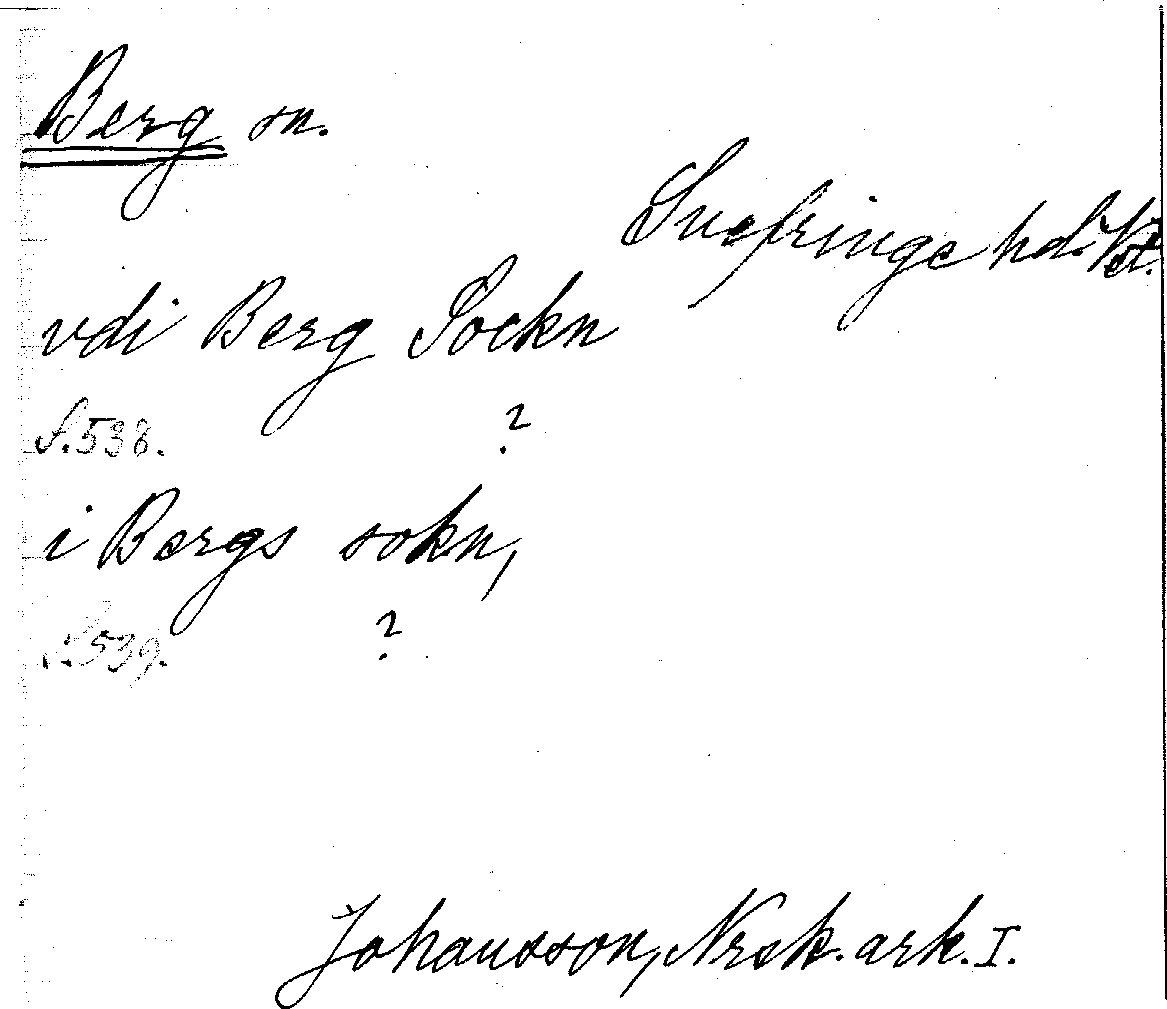 Berg sn.
Snefringe hd. Vstm.
vdi Berg Sockn
S. 538. ?
i Bergs sokn,
S. 539. ?
Johansson, Nrsk. ark. I.